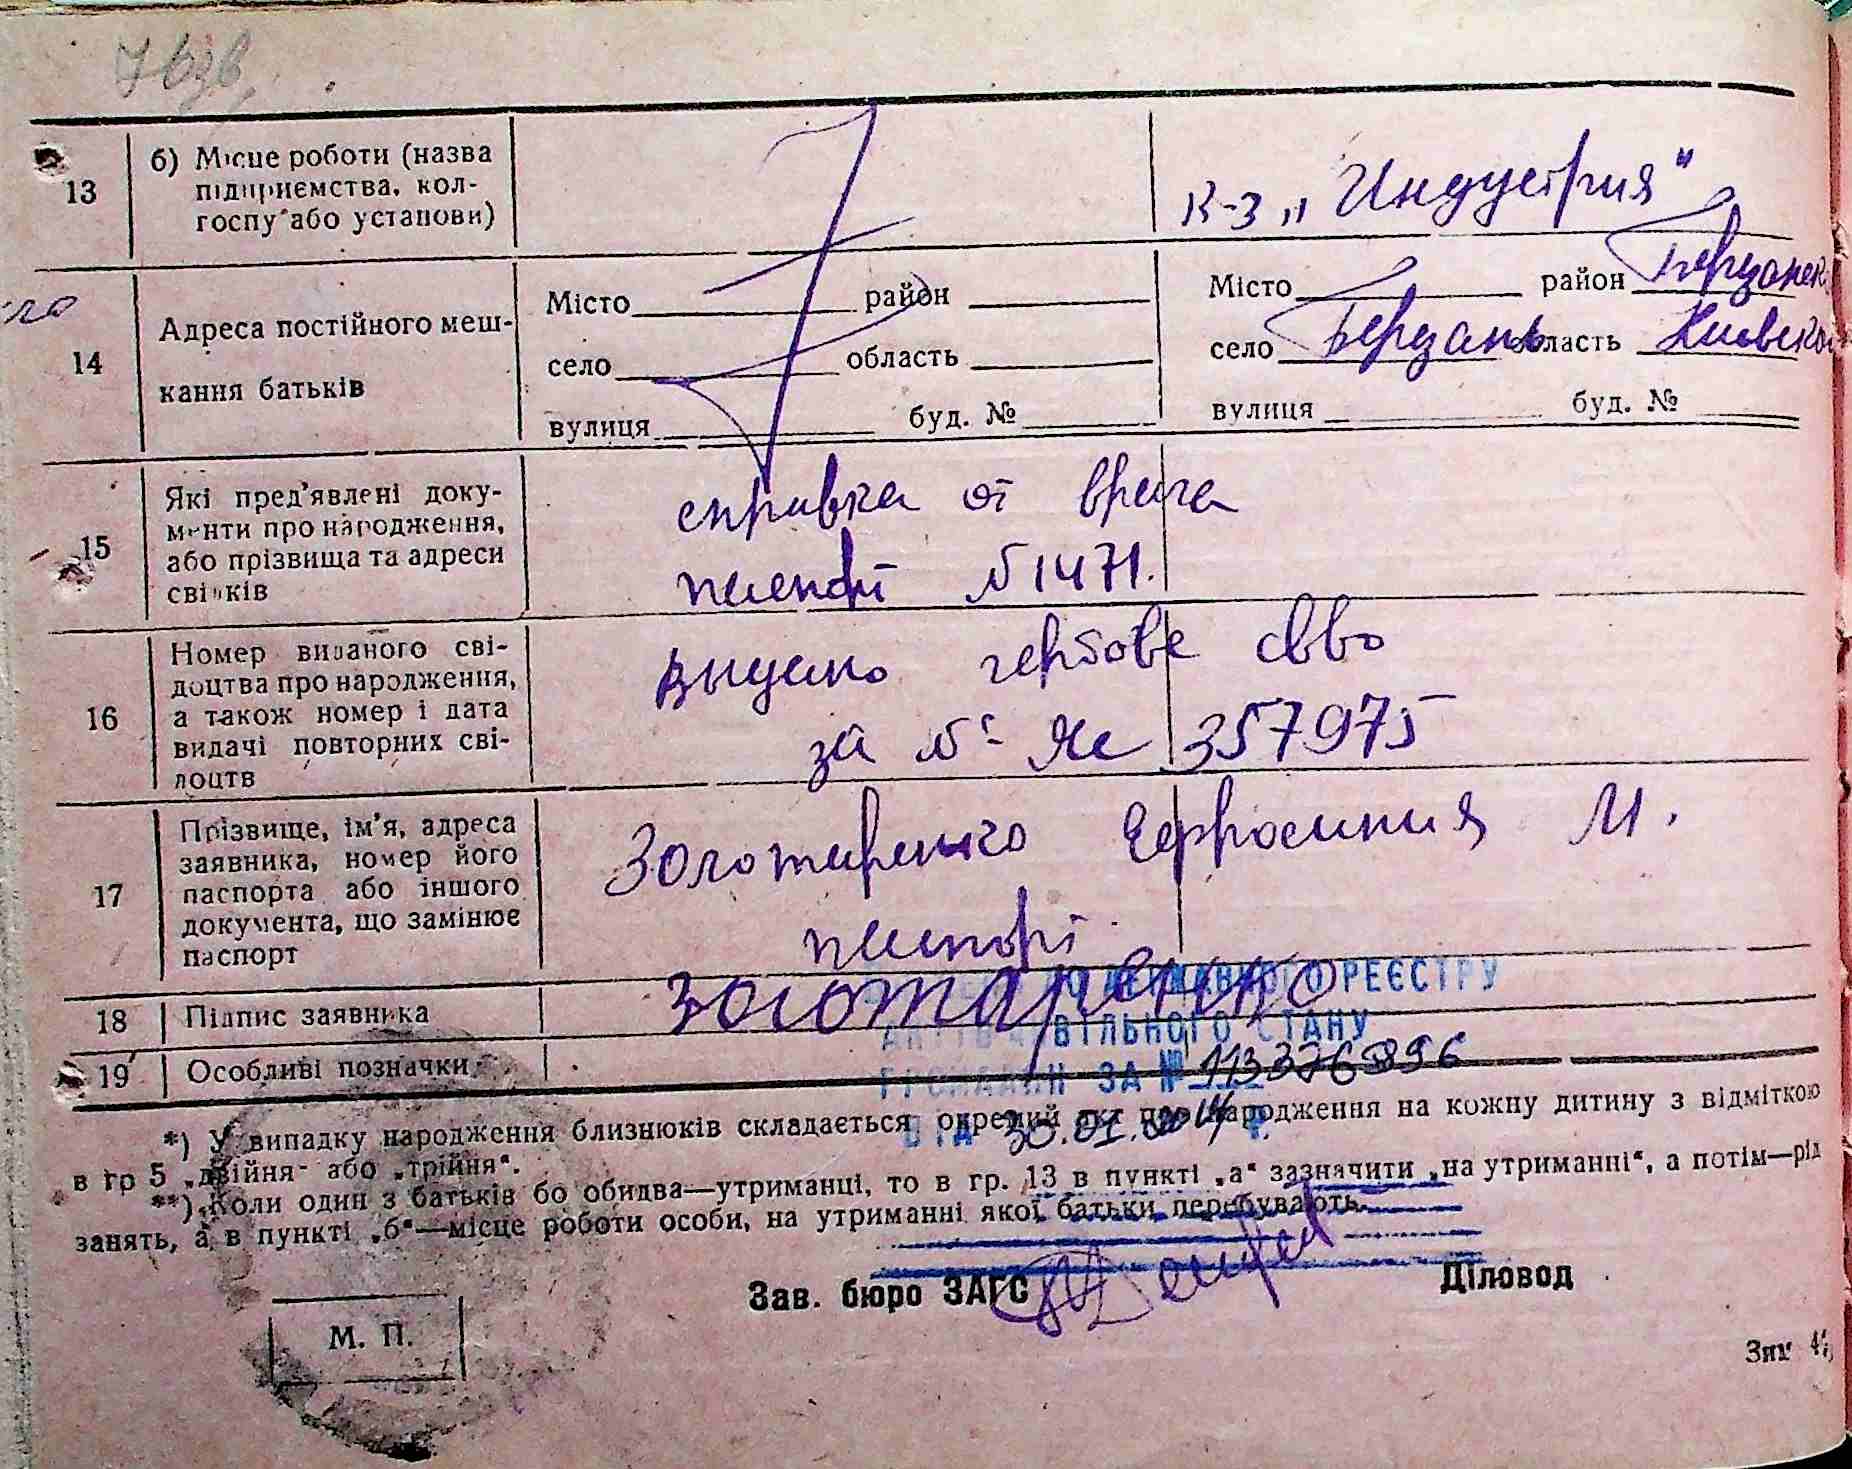 7 взв
13
б) Місце роботи (назва
підприємства, кол-
госпу або установи)
к-з „Индустрия“
14
Адреса постійного меш-
кання батьків
Місто район
село область
вулиця буд. №
Місто район Березанск
село Березань область Киевской
вулиця буд. №
15
Які пред’явлені доку-
менти про народження,
або прізвища та адреси
свідків
справка от врача
паспорт №1471.
16
Номер виданого сві-
доцтва про народження,
а також номер і дата
видачі повторних сві-
доцтв
выдано гербове св во
за № Яс 357975
17
Прізвище, ім’я, адреса
заявника, номер його
паспорта або іншого
документа, що замінює
паспорт
Золотаренко Ефросиния М.
паспорт
18
Підпис заявника
Золотаренко
ДЕРЖАВНОГО РЕЄСТРУ
АКТІВ ЦИВІЛЬНОГО СТАНУ
ГРОМАДЯН ЗА №
ВІД 30.01.2014 Р.
19
Особливі позначки
*) У випадку народження близнюків складається окремий акт про народження на кожну дитину з відміткою
в гр 5 „двійня“ або „трійня“.
**) Коли один з батьків бо обидва—утриманці, то в гр. 13 в пункті „а“ зазначити „на утриманні“, а потім—рід
занять, а в пункті „б“—місце роботи особи, на утриманні якої батьки перебувають.
Зав. бюро ЗАГС
Діловод
М. П.